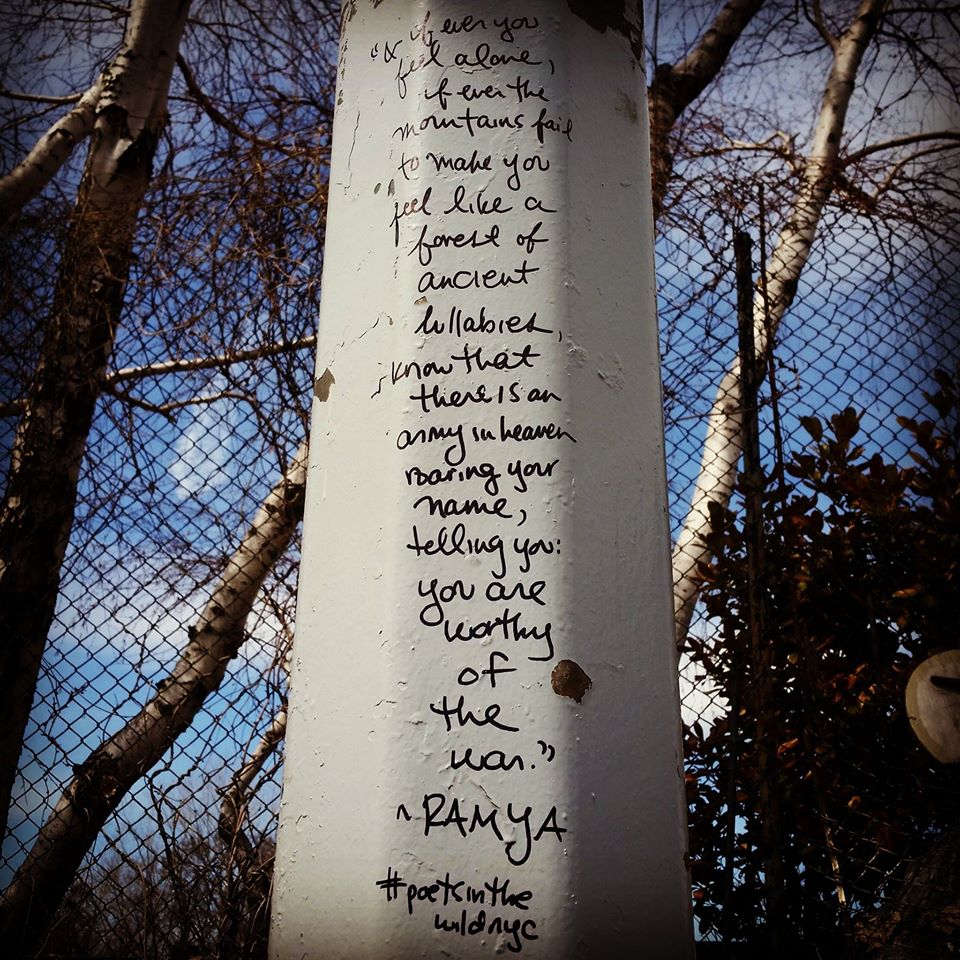 "& if ever you
feel alone,
if ever the
mountains fail
to make you
feel like a
forest of
ancient
lullabies,
know that
there is an
army in heaven
roaring your
name,
telling you:
you are
worthy
of
the
war."
~ RAMYA
#poetsinthe
wildnyc